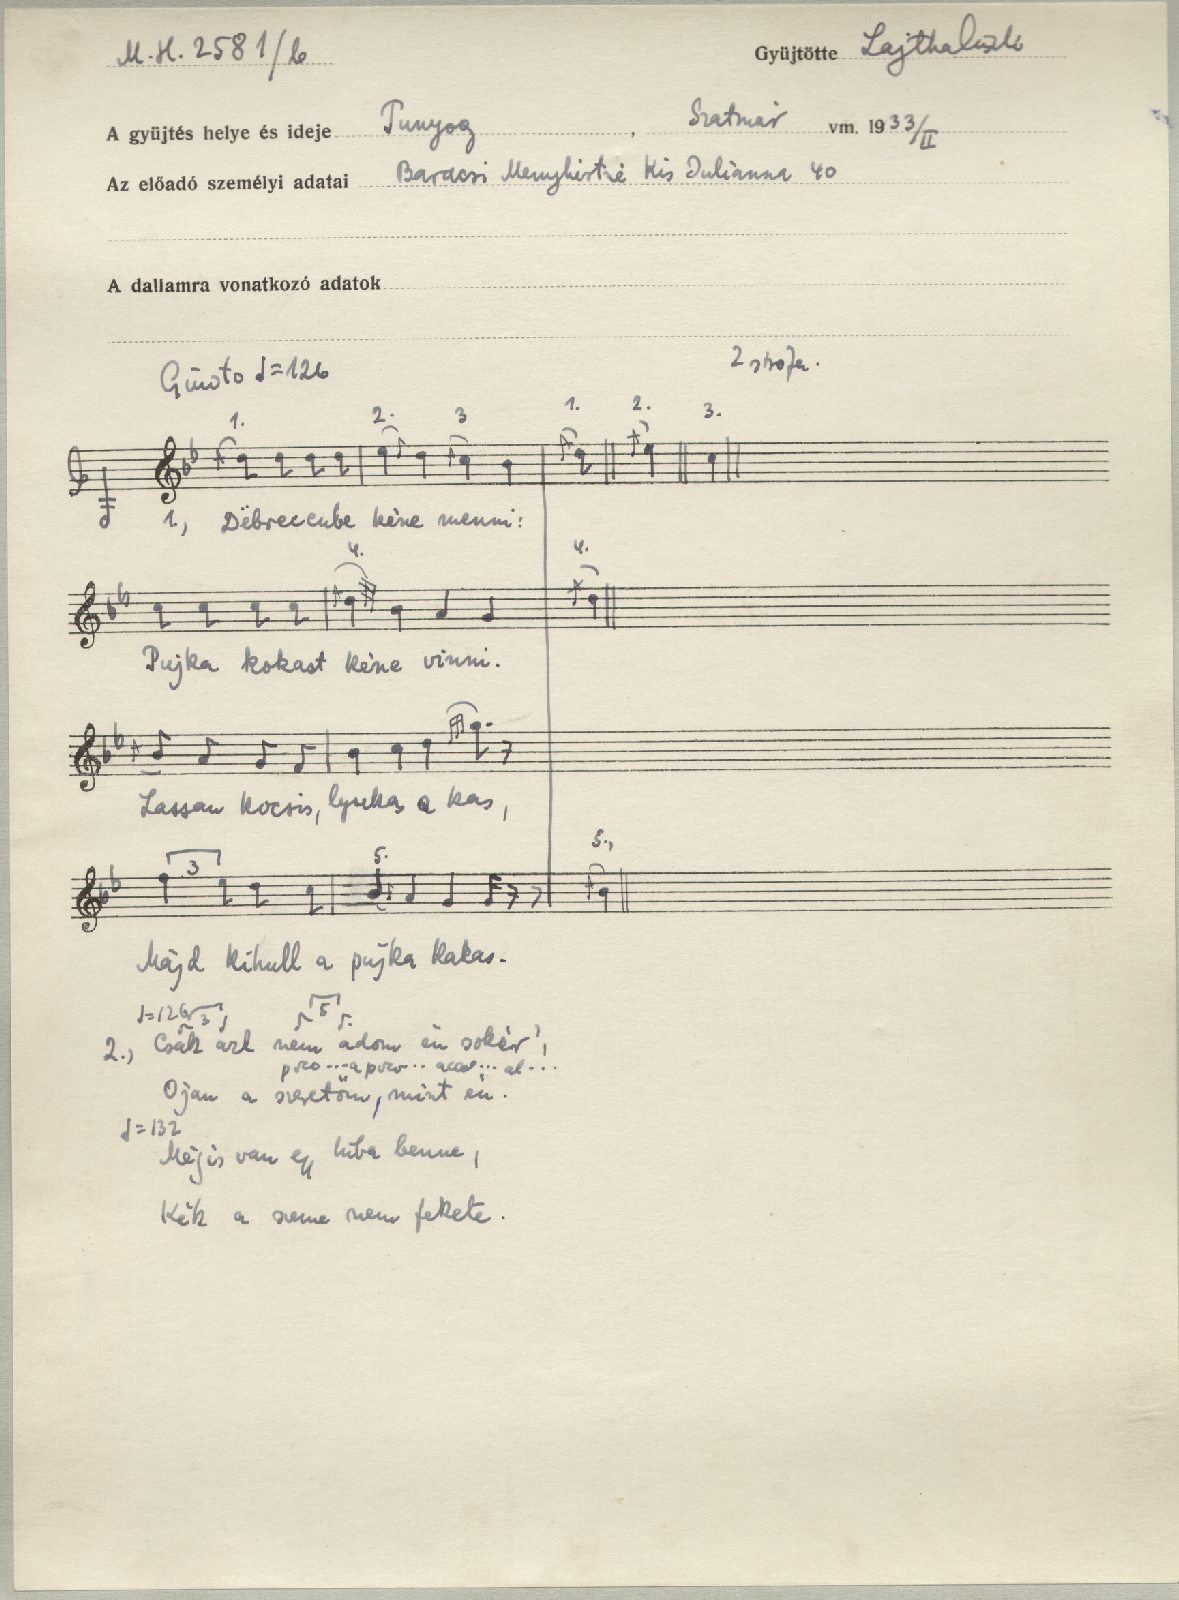 M.H. 2581/b
Gyüjtötte Lajtha László
A gyüjtés helye és ideje Tunyog, Szatmár vm. 1933/II
Az előadó személyi adatai Baracsi Menyhértné Kis Julianna 40
A dallamra vonatkozó adatok
Giusto ♩=126
2 strófa.
1. 2. 3 1. 2. 3.
1., Dëbreccenbe kéne menni:
4. 4.
Pujka kokast kéne vinni.
Lassan kocsis, lyukas a kas,
3 5. 5.,
Májd kihull a pujka kakas.
♩=126 3 5
2., Csak azt nem adom én sokér',
poco --- a poco -- accel --- al ---
Ojan a szeretőm, mint én.
♩=132
Mégis van egy hiba benne,
Kék a szeme nem fekete.